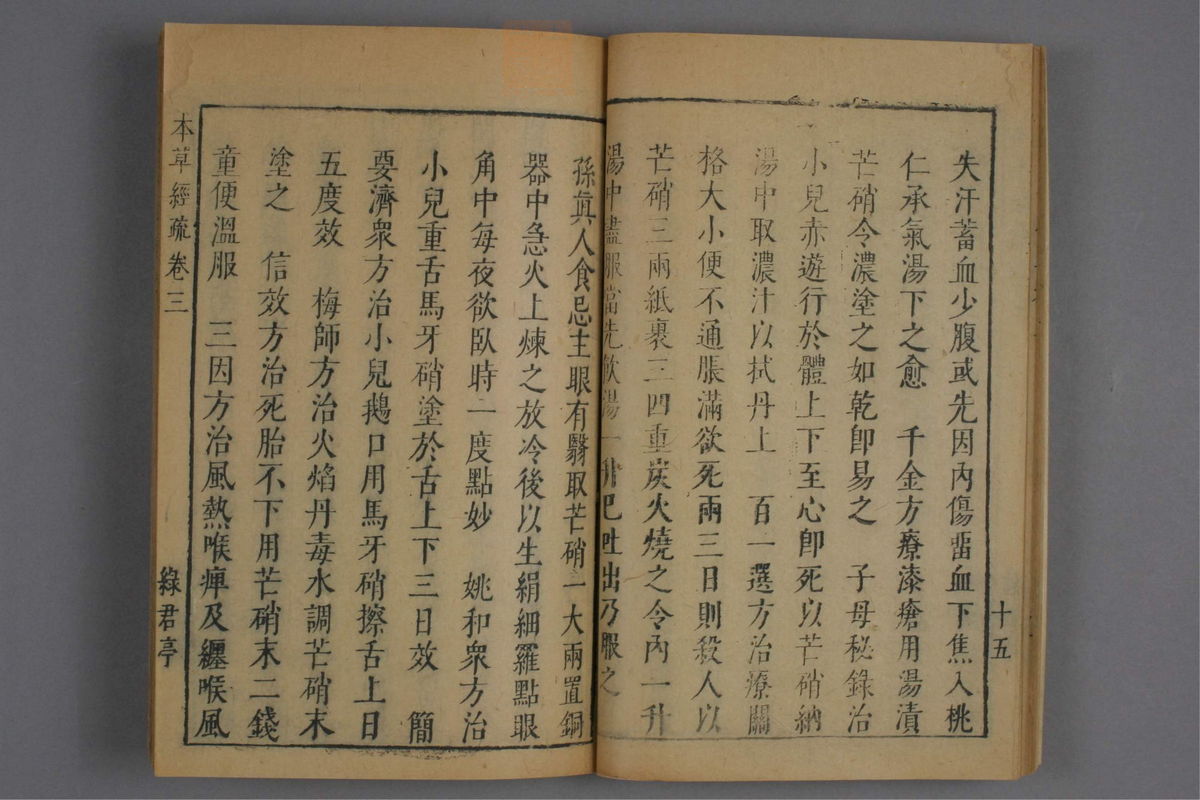 失汗蓄血少腹或先因內傷畱血下焦入桃
仁承氣湯下之愈　千金方療漆瘡用湯漬
芒硝令濃塗之如乾卽易之　子母秘錄治
小兒赤遊行於體上下至心卽死以芒硝納
湯中取濃汁以拭丹上　百一選方治療關
格大小便不通脹滿欲死兩三日則殺人以
芒硝三兩紙裹三四重炭火燒之令內一升
湯中盡服當先飲湯一升巳吐出乃服之
十五
孫眞人食忌主眼有翳取芒硝一大兩置銅
器中急火上煉之放冷後以生絹細羅點眼
角中每夜欲臥時一度點妙　姚和衆方治
小兒重舌馬牙硝塗於舌上下三日效　簡
要濟衆方治小兒鵝口用馬牙硝擦舌上日
五度效　梅師方治火焰丹毒水調芒硝末
塗之　信效方治死胎不下用芒硝末二錢
童便溫服　三因方治風熱喉痺及纏喉風
本草經疏 卷三
綠君亭